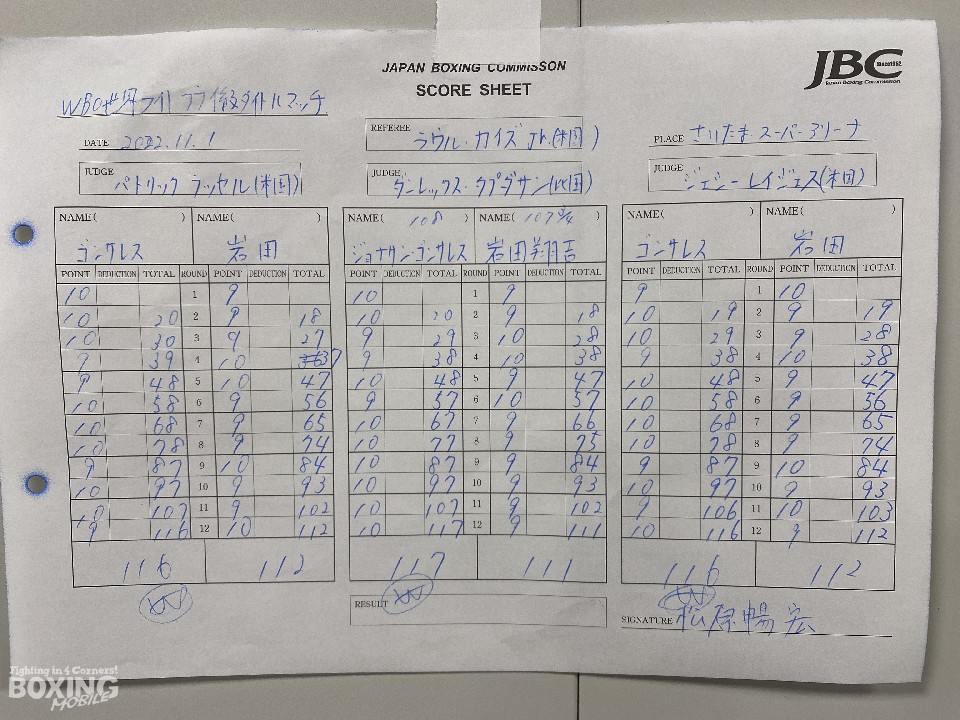 JAPAN BOXING COMMISSON
SCORE SHEET
JBC
Since1952
Japan Boxing Commission
WBO世界ライトフライ級タイトルマッチ
DATE 2022.11.1
REFEREE ラウル・カイズJr.(米国)
PLACE さいたまスーパーアリーナ
JUDGE パトリック ラッセル(米国)
JUDGE ダーレックス・タプダサン(比国)
JUDGE ジェシー レイジェス(米国)
NAME( ) NAME( ) NAME( 108 ) NAME( 107 3/4 ) NAME( ) NAME( )
ゴンサレス 岩田 ジョナサン・ゴンサレス 岩田翔吉 ゴンサレス 岩田
POINT DEDUCTION TOTAL ROUND POINT DEDUCTION TOTAL POINT DEDUCTION TOTAL ROUND POINT DEDUCTION TOTAL POINT DEDUCTION TOTAL ROUND POINT DEDUCTION TOTAL
10 1 9 10 1 9 9 1 10
10 20 2 9 18 10 20 2 9 18 10 19 2 9 19
10 30 3 9 27 9 29 3 10 28 10 29 3 9 28
9 39 4 10 37 9 38 4 10 38 9 38 4 10 38
9 48 5 10 47 10 48 5 9 47 10 48 5 9 47
10 58 6 9 56 9 57 6 10 57 10 58 6 9 56
10 68 7 9 65 10 67 7 9 66 10 68 7 9 65
10 78 8 9 74 10 77 8 9 75 10 78 8 9 74
9 87 9 10 84 10 87 9 9 84 9 87 9 10 84
10 97 10 9 93 10 97 10 9 93 10 97 10 9 93
10 107 11 9 102 10 107 11 9 102 9 106 11 10 103
9 116 12 10 112 10 117 12 9 111 10 116 12 9 112
116 112 117 111 116 112
W W W
RESULT
SIGNATURE 松原暢宏
Fighting in 4 Corners!
BOXING
MOBILE